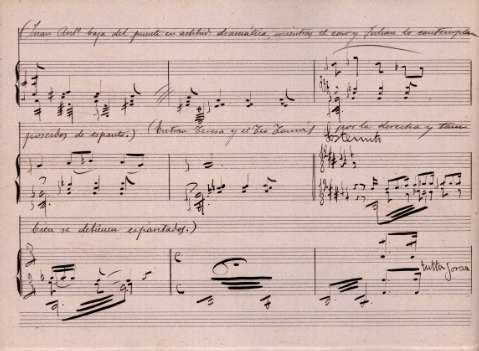 (Juan Antº baja del puente en actitud dramática, mientras el coro y Julian lo contemplan
poseidos de espanto.) (Entran Teresa y el Tio por la derecha y tam
bien se detienen espantados.)
tutta forza